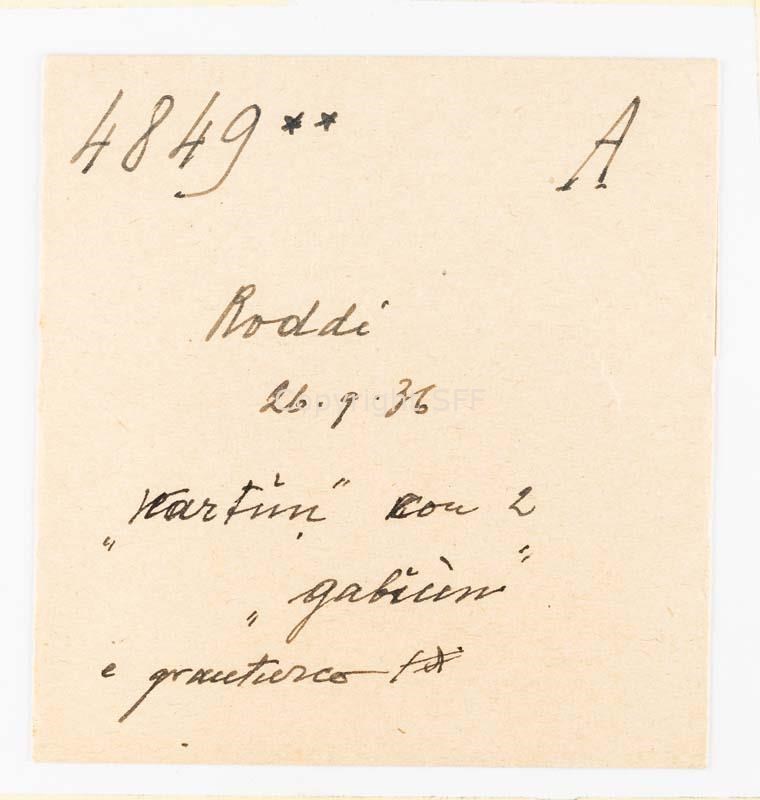 4849** A
Roddi
26.9.36
„kartün" con 2
„gabiun"
e granturco